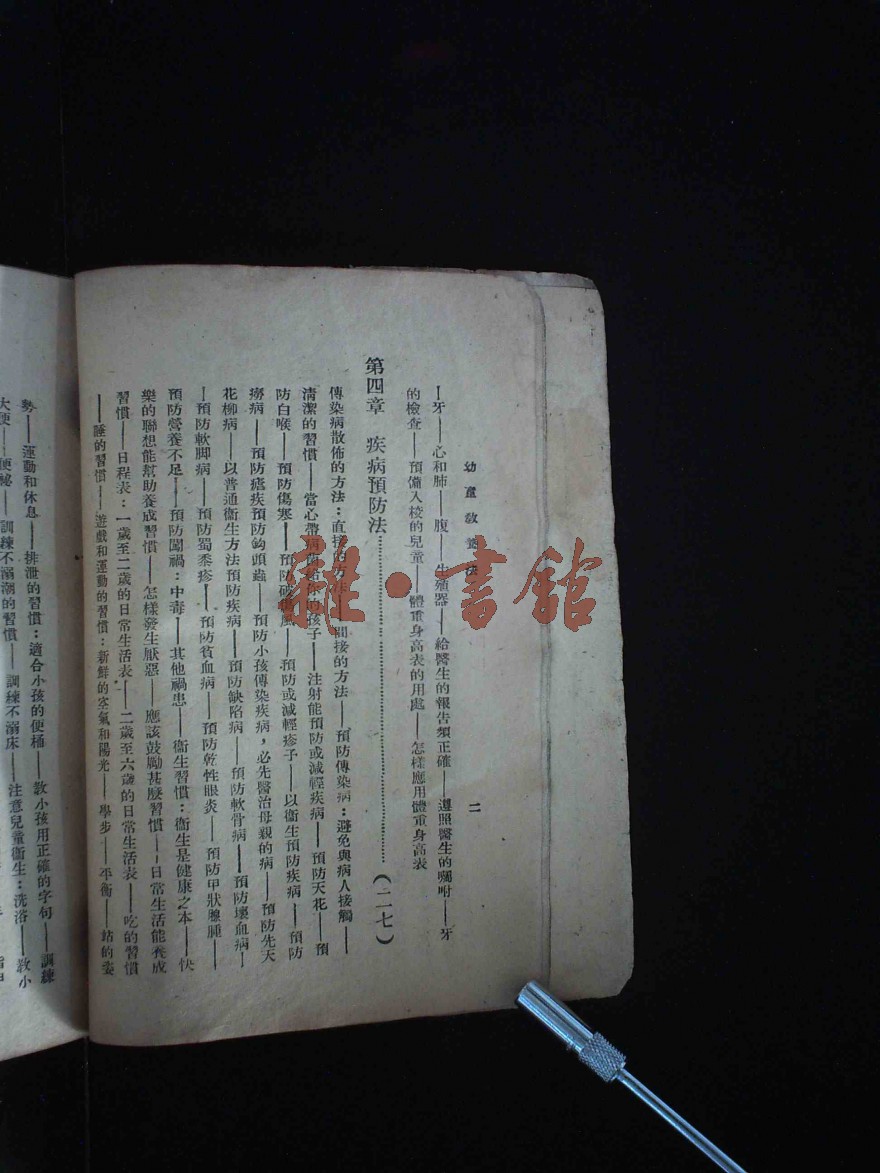 幼童教養法
二
—牙——心和肺——腹——生殖器——給醫生的報告須正確——遵照醫生的囑咐——牙
的檢查——預備入校的兒童——體重身高表的用處——怎樣應用體重身高表
第四章 疾病預防法……………………………………(二一七)
傳染病散佈的方法：直接的方法——間接的方法——預防傳染病：避免與病人接觸——
清潔的習慣——當心帶病菌給你的孩子——注射能預防或減輕疾病——預防天花——預
防白喉——預防傷寒——預防破傷風——預防或減輕疹子——以衞生預防疾病——預防
癆病——預防瘧疾預防鈎頭蟲——預防小孩傳染疾病，必先醫治母親的病——預防先天
花柳病——以普通衞生方法預防疾病——預防缺陷病——預防軟骨病——預防壞血病—
—預防軟脚病——預防蜀黍疹——預防貧血病——預防乾性眼炎——預防甲狀腺腫——
預防營養不足——預防闖禍：中毒——其他禍患——衞生習慣：衞生是健康之本——快
樂的聯想能幫助養成習慣——怎樣發生厭惡——應該鼓勵甚麼習慣——日常生活能養成
習慣——日程表：一歲至二歲的日常生活表——二歲至六歲的日常生活表——吃的習慣
——睡的習慣——遊戲和運動的習慣：新鮮的空氣和陽光——學步——平衡——站的姿
勢——運動和休息——排泄的習慣：適合小孩的便桶——教小孩用正確的字句——訓練
大便——便祕——訓練不溺潮的習慣——訓練不溺床——注意兒童衞生：洗浴——教小
雜·書館